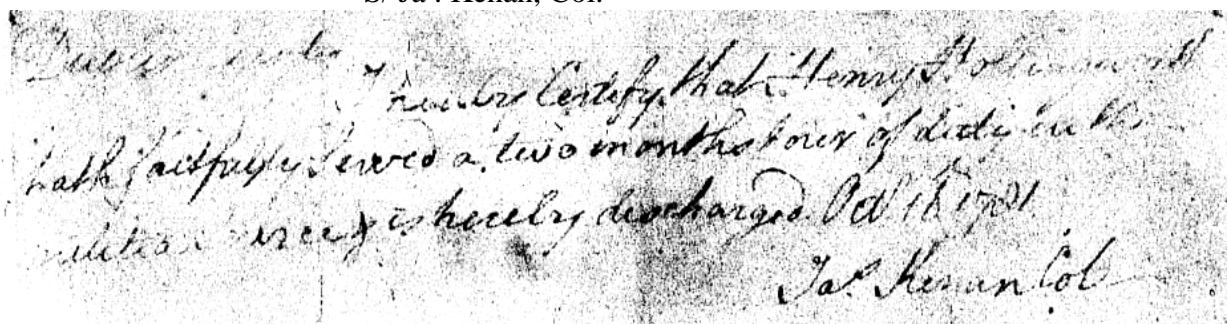 S/ Ja⁠ˢ. Kenan, Col.
I hereby Certify that Henry Hollinsworth
hath faithfully Served a two months tour of duty in the
militia & is hereby discharged Oct 18th 1781
Jas. Kenan Col